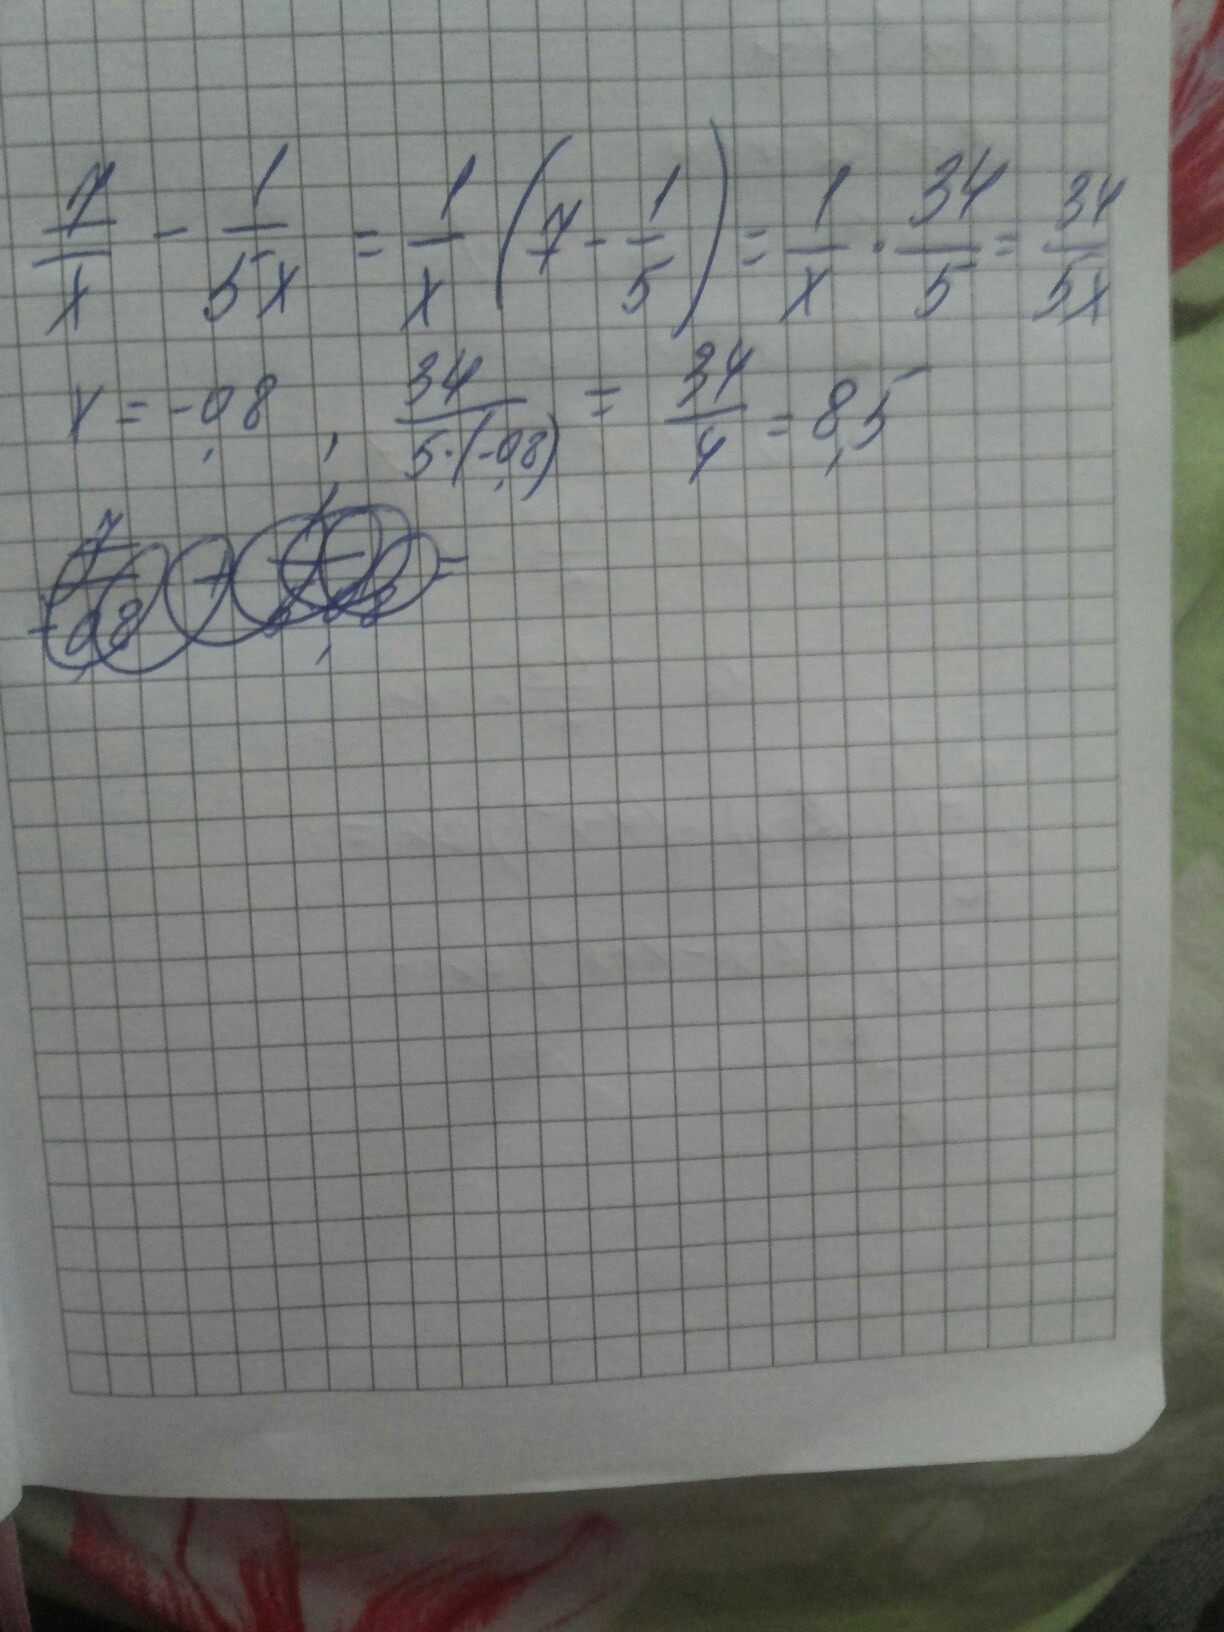 7/x - 1/5x = 1/x (7 - 1/5) = 1/x · 34/5 = 34/5x
x = -0,8, 34/5·(-0,8) = 34/4 = 8,5